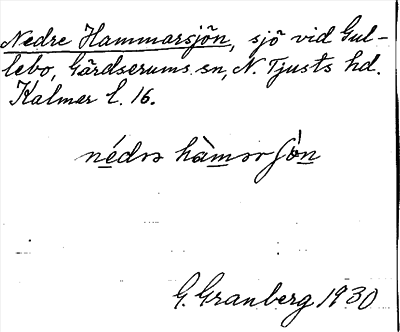 Nedre Hammarsjön, sjö vid Gul-
lebo, Gärdserums sn, N. Tjusts hd.
Kalmar l. 16.
G. Granberg 1930